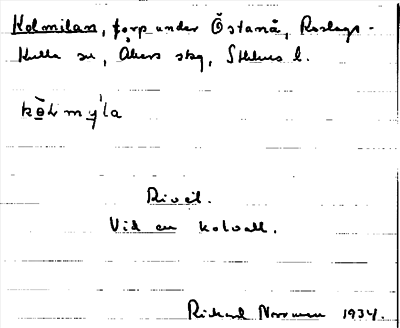 Kolmilan, torp under Östanå, Roslags-
Kulla sn, Åkers skg, Sthlms l.
kò̱Lmy̱ᷝla
Rivet.
Vid en kolvall.
Rickard Norrman 1934.